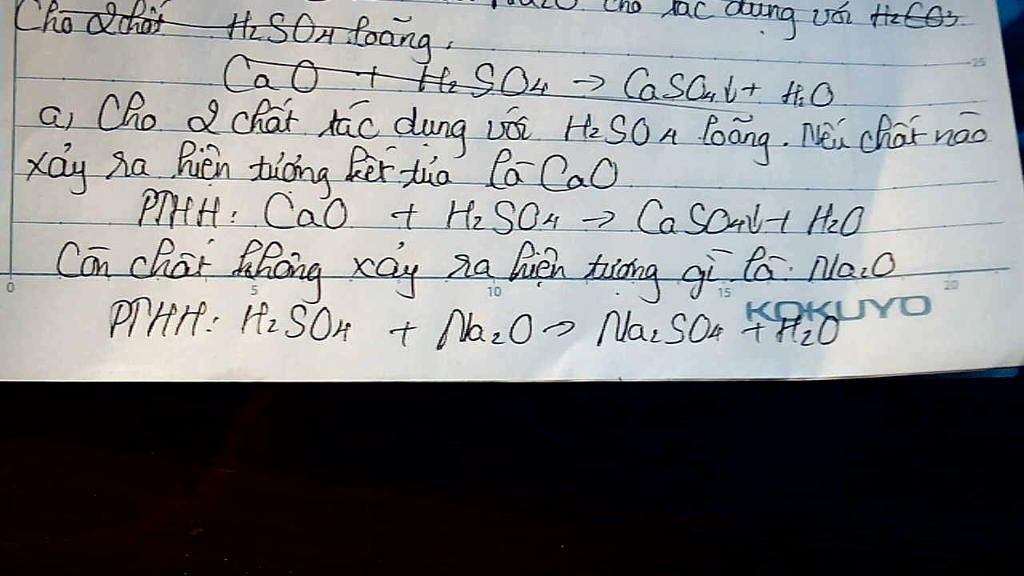 Na2O cho tác dụng với H2CO3
Cho 2 chất H2SO4 loãng.
25
CaO + H2SO4 → CaSO4↓ + H2O
a, Cho 2 chất tác dụng với H2SO4 loãng. Nếu chất nào
xảy ra hiện tướng kết tủa là CaO
PTHH: CaO + H2SO4 → CaSO4↓ + H2O
Còn chất không xảy ra hiện tượng gì là: Na2O
0 5 10 15 20
KOKUYO
PTHH: H2SO4 + Na2O → Na2SO4 + H2O